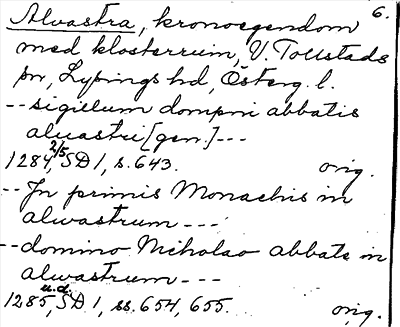 6.
Alvastra, kronoegendom
med klosterruin, V. Tollstads
sn, Lysings hd, Österg. l.
-- sigillum dompni abbatis
aluastri [gen.] ---
1284 2/5, SD 1, s. 643. orig.
-- In primis Monachis in
alwastrum ---
-- domino Nicholao abbate in
alwastrum ---
1285 u.d., SD 1, ss. 654, 655. orig.